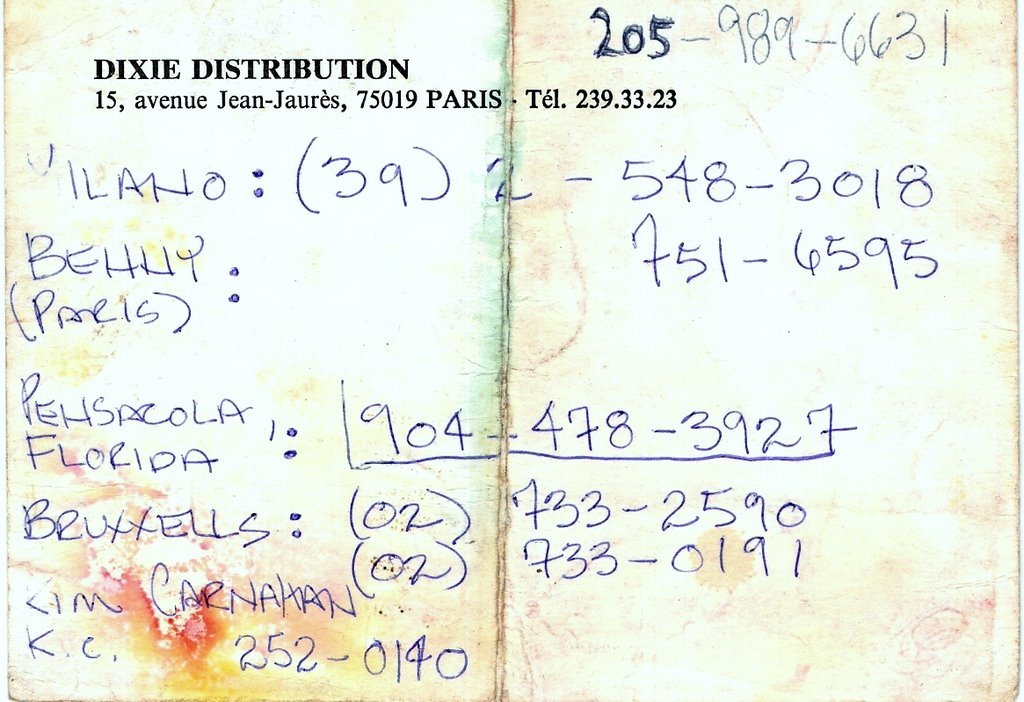 205-989-6631
DIXIE DISTRIBUTION
15, avenue Jean-Jaurès, 75019 PARIS - Tél. 239.33.23
MILANO: (39) 2 - 548-3018
BENNY (PARIS): 751-6595
PENSACOLA, FLORIDA: 904-478-3927
BRUXXELLS: (02) 733-2590
(02) 733-0191
KIM CARNAHAN
K.C. 252-0140